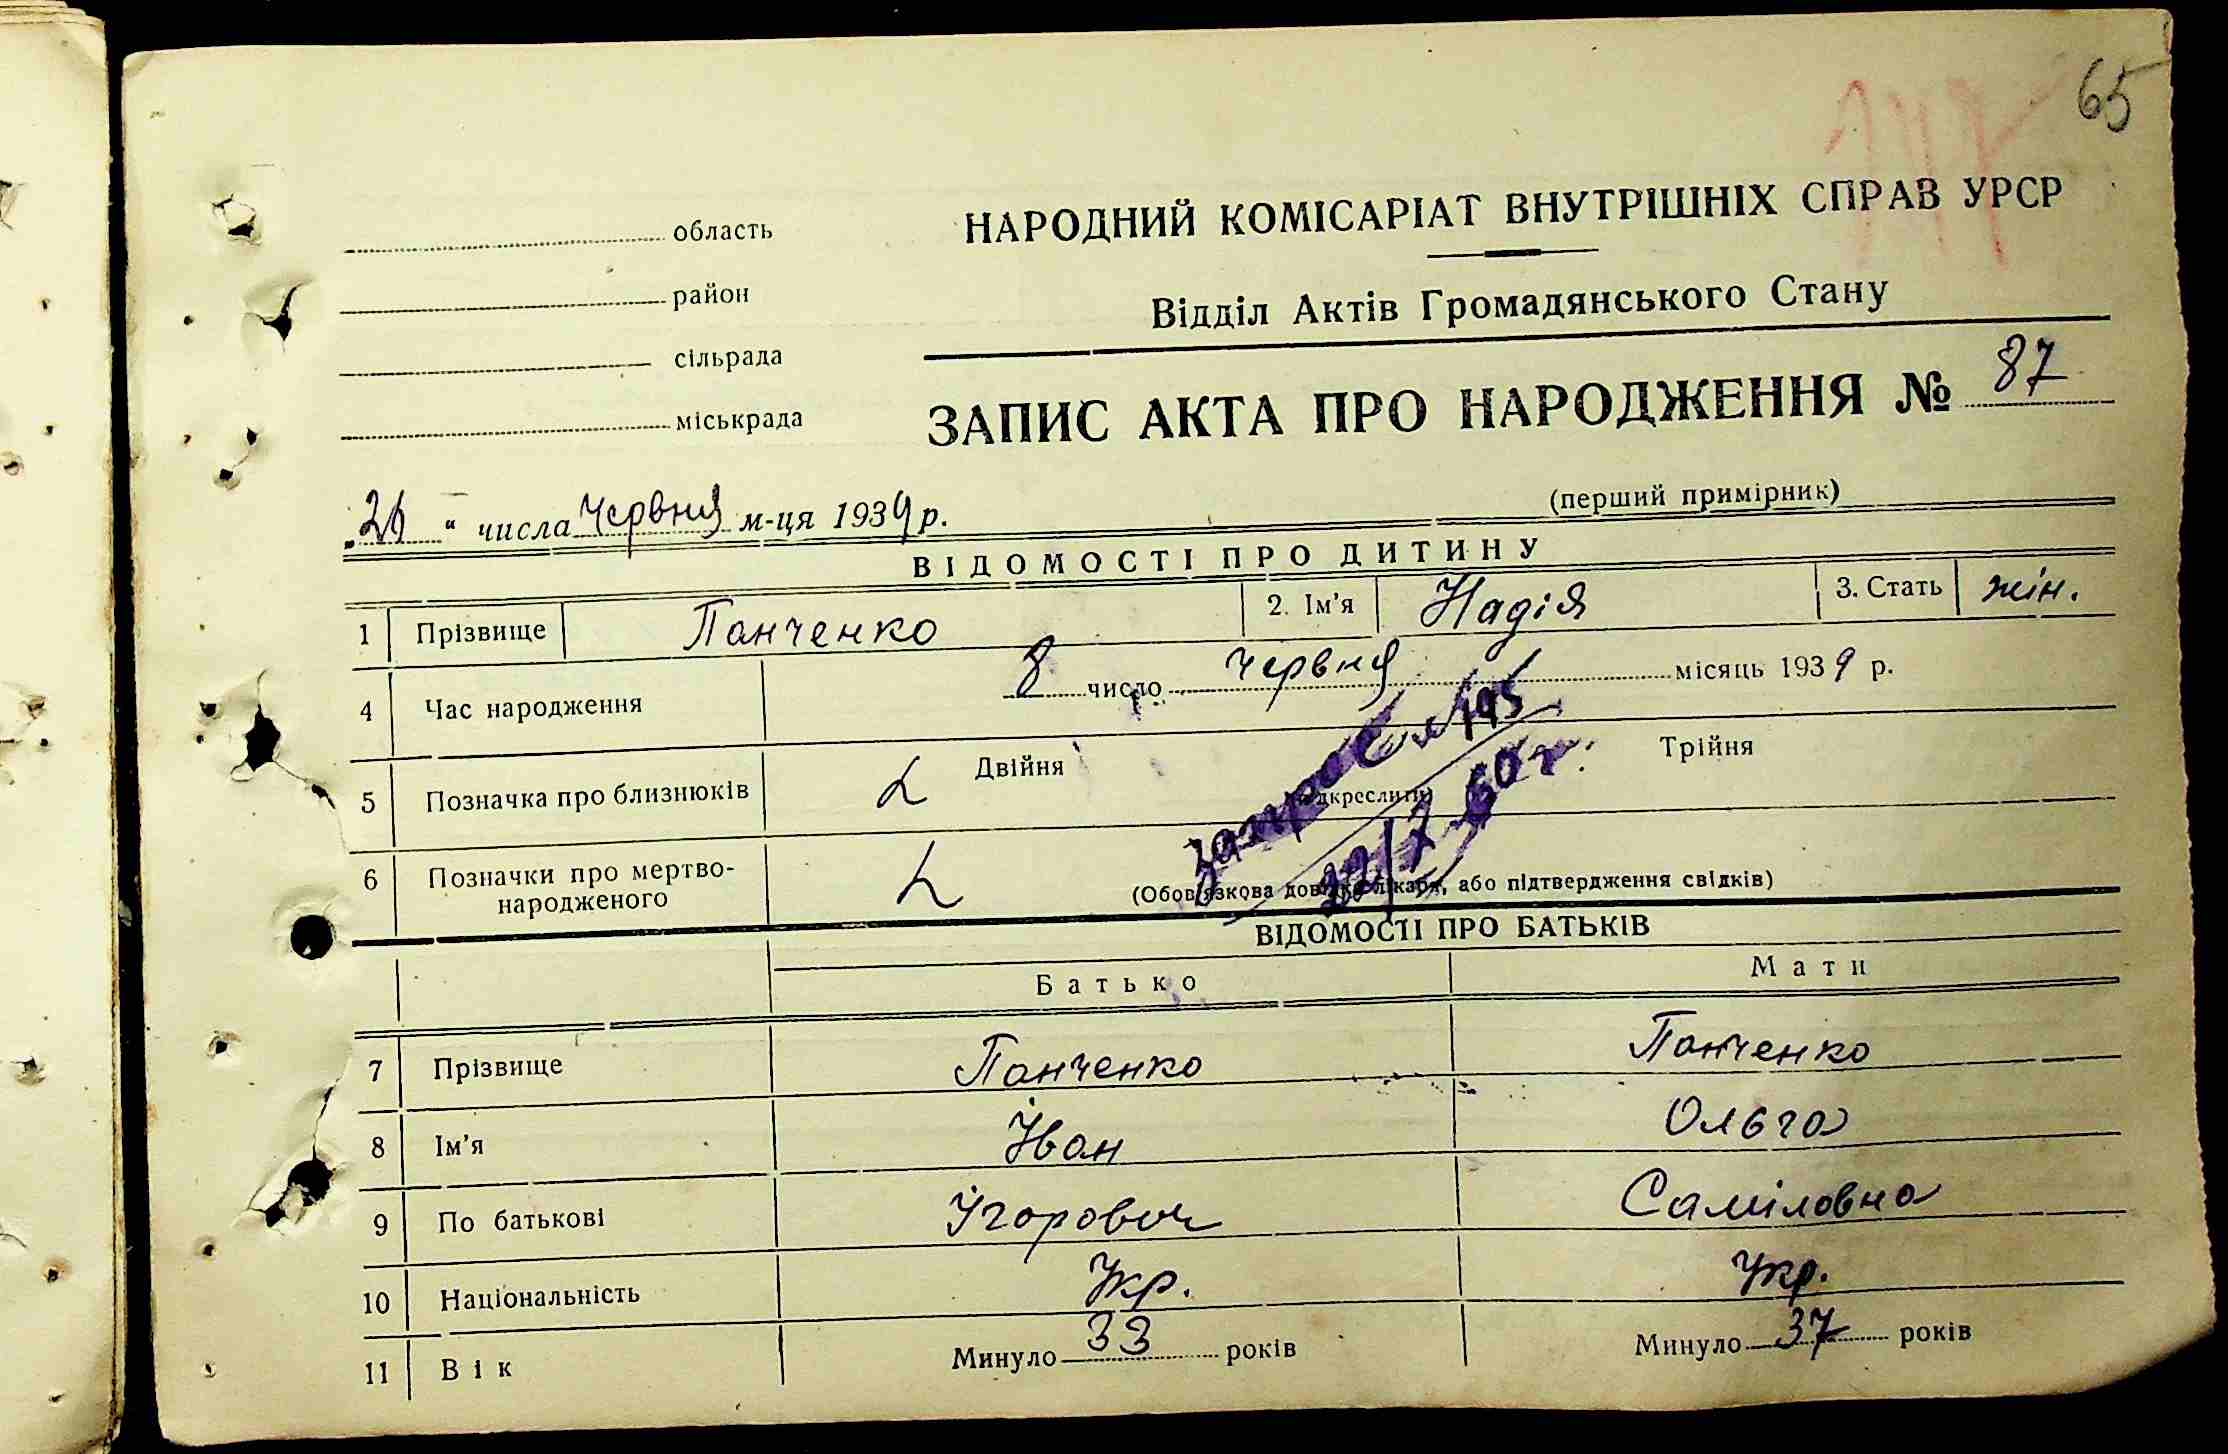 65
область
НАРОДНИЙ КОМІСАРІАТ ВНУТРІШНІХ СПРАВ УРСР
район
Відділ Актів Громадянського Стану
сільрада
міськрада
ЗАПИС АКТА ПРО НАРОДЖЕННЯ № 87
(перший примірник)
„26“ числа червня м-ця 1939 р.
ВІДОМОСТІ ПРО ДИТИНУ
1 Прізвище Панченко 2. Ім'я Надія 3. Стать жін.
4 Час народження 8 число червня місяць 1939 р.
5 Позначка про близнюків Двійня Трійня
(підкреслити)
6 Позначки про мертвонародженого
(Обов'язкова довідка лікаря, або підтвердження свідків)
ВІДОМОСТІ ПРО БАТЬКІВ
Батько Мати
7 Прізвище Панченко Панченко
8 Ім'я Іван Ольга
9 По батькові Ігорович Саміловна
10 Національність Укр. Укр.
11 Вік Минуло 33 років Минуло 37 років